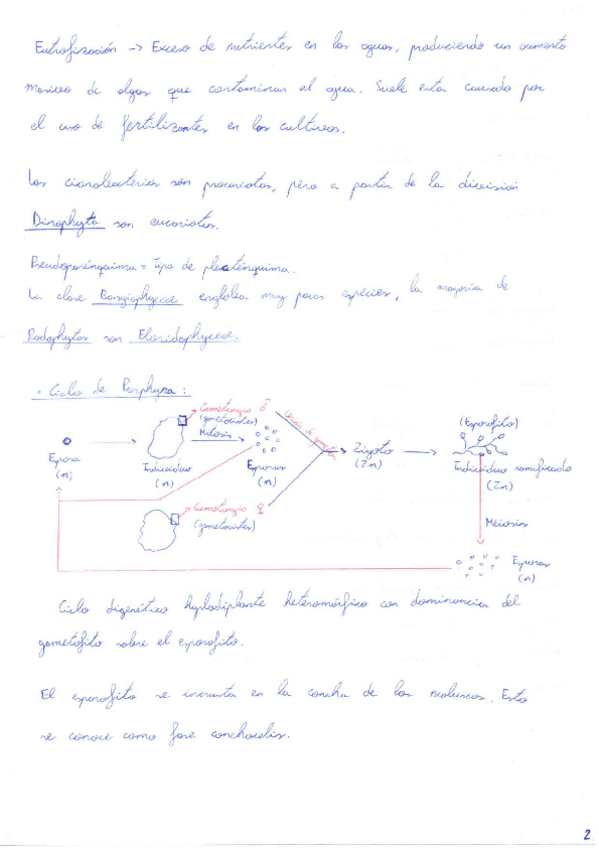 Eutrofización -> Exceso de nutrientes en las aguas, produciendo un aumento
masivo de algas que contaminan al agua. Suele estar causado por
el uso de fertilizantes en los cultivos.
Las cianobacterias son procariotas, pero a partir de la división
Dinophyta son eucariotas.
Pseudoparénquima = Tipo de plecténquima.
La clase Bangiophyceae engloba muy pocas especies, la mayoría de
Rodophytas son Floridophyceae.
• Ciclo de Porphyra:
Gametangio ♂
(gametocistes)
Mitosis
Unión de gametos
(Esporofito)
Espora
(n)
Individuo
(n)
Esporas
(n)
Zigoto
(2n)
Individuo ramificado
(2n)
Gametangio ♀
(gametocistes)
Meiosis
Esporas
(n)
Ciclo digenético haplodiplonte heteromórfico con dominancia del
gametofito sobre el esporofito.
El esporofito se incrusta en la concha de los moluscos. Esto
se conoce como fase conchocelis.
2